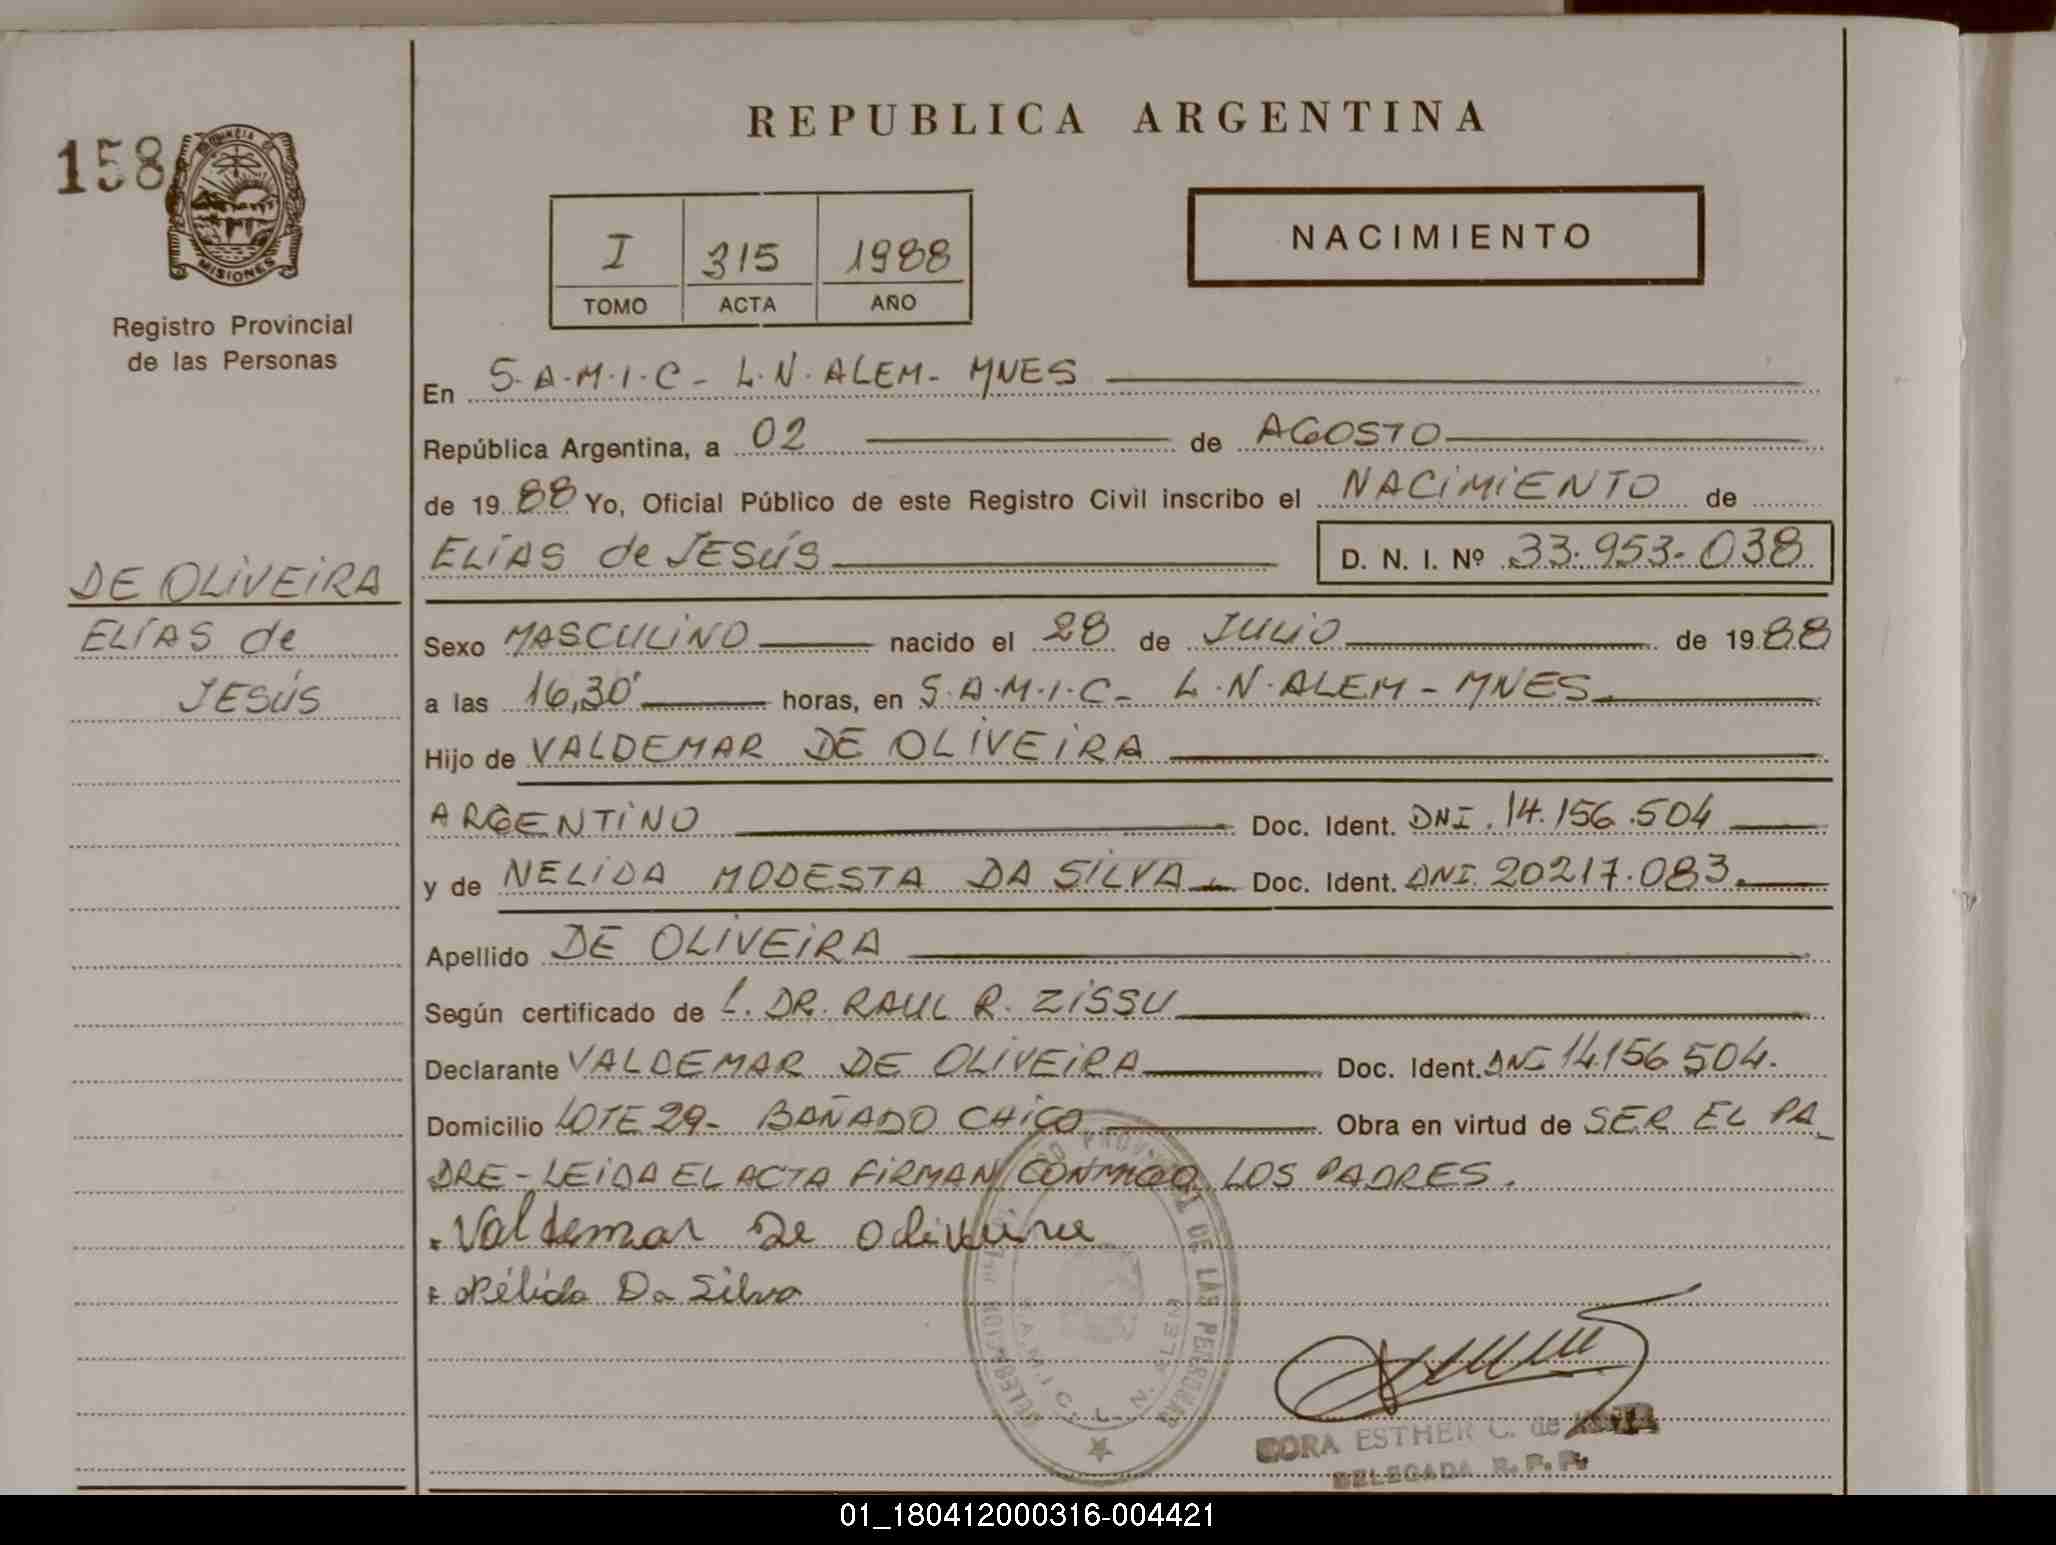 REPUBLICA ARGENTINA
158
PROVINCIA
MISIONES
Registro Provincial
de las Personas
I 315 1988
TOMO ACTA AÑO
NACIMIENTO
En S.A.M.I.C - L.N. ALEM - MNES
República Argentina, a 02 de AGOSTO
de 1988 Yo, Oficial Público de este Registro Civil inscribo el NACIMIENTO de
ELÍAS de JESÚS D. N. I. Nº 33.953.038
DE OLIVEIRA
ELÍAS de
JESÚS
Sexo MASCULINO nacido el 28 de JULIO de 1988
a las 16,30' horas, en S.A.M.I.C - L.N. ALEM - MNES.
Hijo de VALDEMAR DE OLIVEIRA
ARGENTINO Doc. Ident. DNI. 14.156.504
y de NELIDA MODESTA DA SILVA. Doc. Ident. DNI. 20217.083.
Apellido DE OLIVEIRA
Según certificado de L. DR. RAUL R. ZISSU
Declarante VALDEMAR DE OLIVEIRA Doc. Ident. DNI 14.156 504.
Domicilio LOTE 29- BAÑADO CHICO Obra en virtud de SER EL PA-
DRE - LEIDA EL ACTA FIRMAN CONMIGO LOS PADRES.
Valdemar De Oliveira
Nélida Da Silva
DE LAS PERSONAS
S.A.M.I.C. L. N. ALEM
CORA ESTHER C. de
DELEGADA R. P. P.
01_180412000316-004421